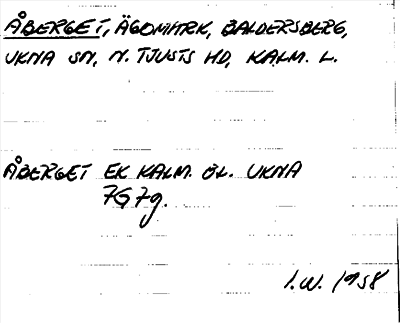 ÅBERGET, ÄGOMMRK, BALDERSBERG,
UKNA SN, N. TJUSTS HD, KALM. L.
ÅBERGET EK KALM. ÖL. UKNA
7G7g.
I.W. 1958